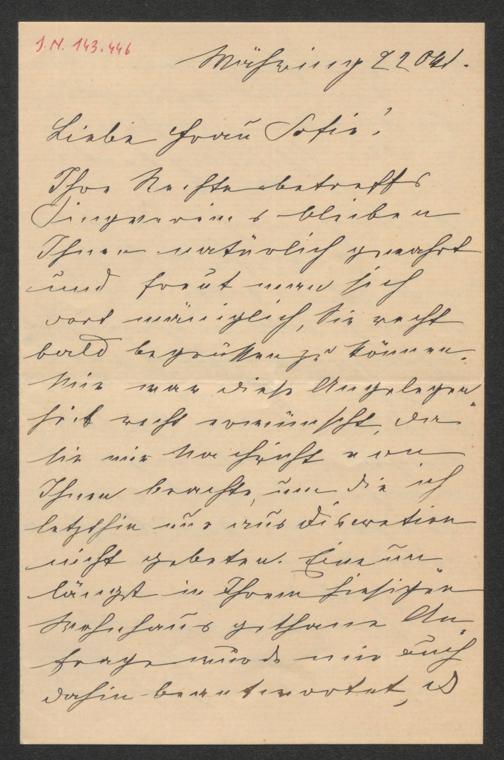 J. N. 143.446
Währing 22 Okt.
Liebe Frau Sofie!
Ihre Rechte betreffs
Singvereins blieben
Ihnen natürlich gewahrt
und freut man sich
dort männiglich, Sie recht
bald begrüssen zu können.
Mir war diese Angelegen
heit recht erwünscht, da
sie mir Nachricht von
Ihnen brachte, um die ich
letzthin nur aus Discretion
nicht gebeten. Eine un
längst in Ihrem hiesigen
Wohnhaus gethane An
frage wurde mir auch
dahin beantwortet, es